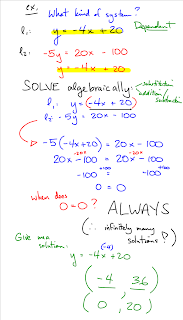 ex. What kind of system?
l₁: y = -4x + 20 Dependent
l₂: -5y = 20x - 100
y = -4x + 20
SOLVE algebraically: (substitution
addition/
subtraction)
l₁: y = (-4x + 20)
l₂: -5y = 20x - 100
-5(-4x+20) = 20x - 100
20x - 100 = 20x - 100
-20x -20x
-100 = -100
+100 +100
0 = 0
when does
0 = 0? ALWAYS
(∴ infinitely many
solutions!)
Give me a
solution: (-4)
y = -4x + 20
(-4, 36)
(0, 20)